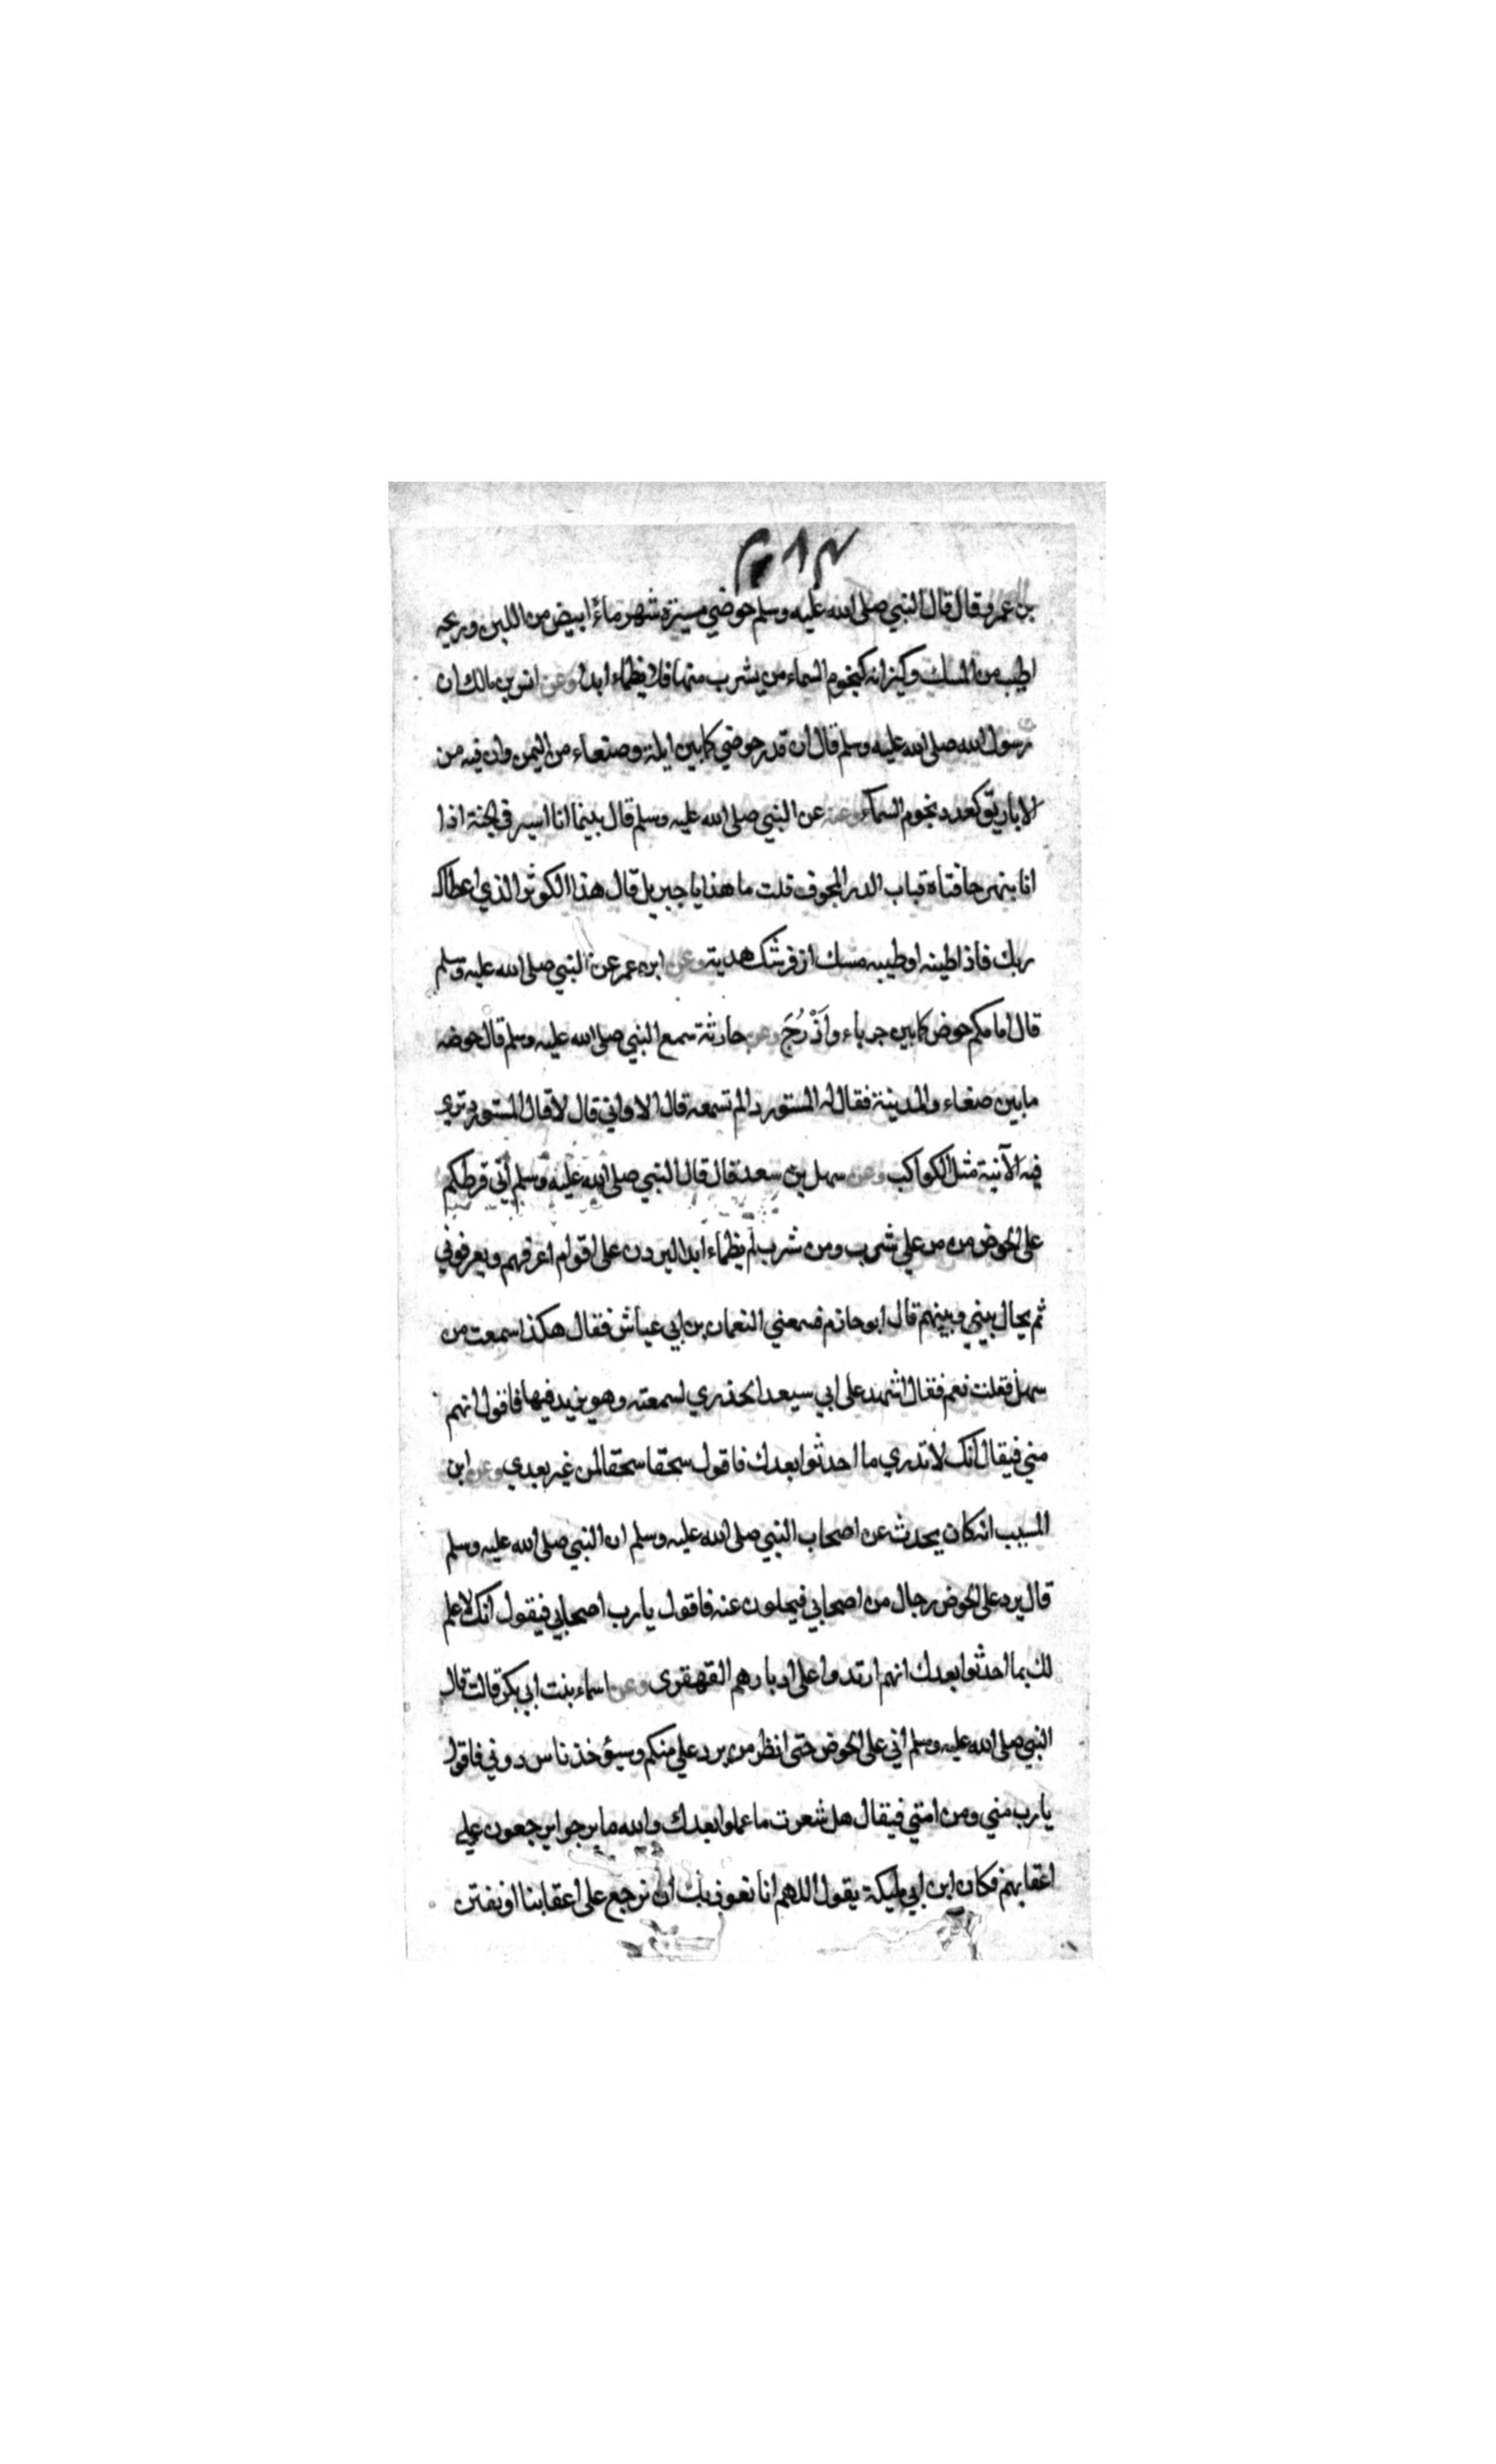 بن عمرو قال قال النبي صلى الله عليه وسلم حوضي مسيرة شهر ماءه ابيض من اللبن وريحه
اطيب من المسك وكيزانه كنجوم السماء من يشرب منها فلا يظماء ابدا وعن انس بن مالك ان
رسول الله صلى الله عليه وسلم قال ان قدر حوضي كما بين ايلة وصنعاء من اليمن وان فيه من
الاباريق كعدد نجوم السماء وعنه عن النبي صلى الله عليه وسلم قال بينما انا اسير في الجنة اذا
انا بنهر حافتاه قباب الدر المجوف قلت ما هذا يا جبريل قال هذا الكوثر الذي اعطاك
ربك فاذا طينه او طيبه مسك اذفر شك هدبة وعن ابن عمر عن النبي صلى الله عليه وسلم
قال امامكم حوض كما بين جرباء وَأَذْرُجَ وعن حارثة سمع النبي صلى الله عليه وسلم قال حوضه
ما بين صنعاء والمدينة فقال له المستورد الم تسمعه قال الاواني قال لا قال المستورد ترى
فيه الآنية مثل الكواكب وعن سهل بن سعد قال قال النبي صلى الله عليه وسلم اني فرطكم
على الحوض من مر علي شرب ومن شرب لم يظماء ابدا ليردن على اقوام اعرفهم ويعرفوني
ثم يحال بيني وبينهم قال ابو حازم فسمعني النعمان بن ابي عياش فقال هكذا سمعت من
سهل فقلت نعم فقال اشهد على ابي سعيد الخدري لسمعته وهو يزيد فيها فاقول انهم
مني فيقال انك لا تدري ما احدثوا بعدك فاقول سحقا سحقا لمن غير بعدي وعن ابن
المسيب انه كان يحدث عن اصحاب النبي صلى الله عليه وسلم ان النبي صلى الله عليه وسلم
قال يرد على الحوض رجال من اصحابي فيحلون عنه فاقول يا رب اصحابي فيقول انك لا علم
لك بما احدثوا بعدك انهم ارتدوا على ادبارهم القهقرى وعن اسماء بنت ابي بكر قالت قال
النبي صلى الله عليه وسلم اني على الحوض حتى انظر من يرد علي منكم وسيؤخذ ناس دوني فاقول
يا رب مني ومن امتي فيقال هل شعرت ما عملوا بعدك والله ما برحوا يرجعون على
اعقابهم فكان ابن ابي مليكة يقول اللهم انا نعوذ بك ان نرجع على اعقابنا او نفتن